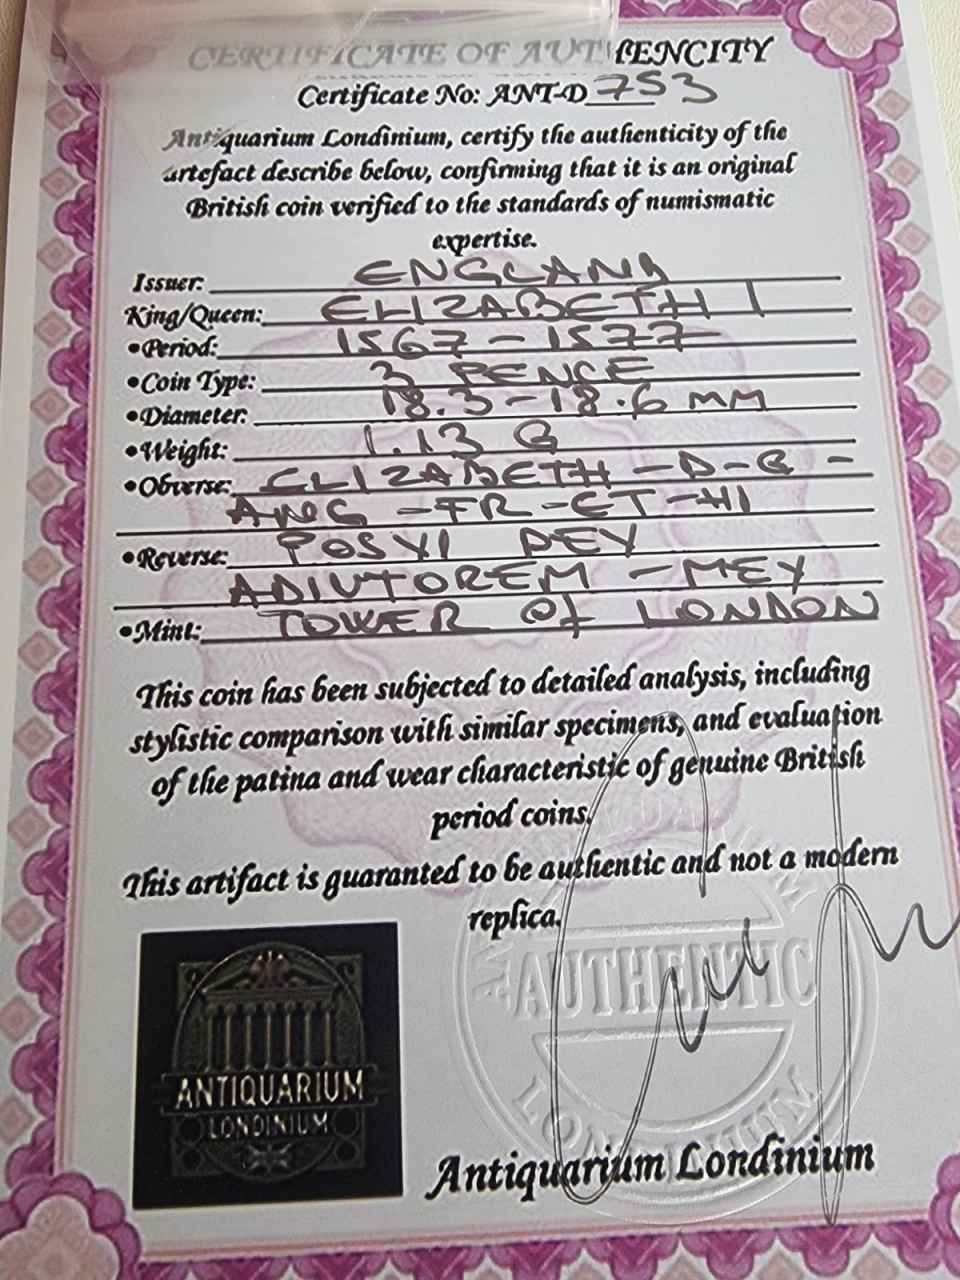 CERTIFICATE OF AUTHENCITY
Certificate No: ANT-D 753
Antiquarium Londinium, certify the authenticity of the
artefact describe below, confirming that it is an original
British coin verified to the standards of numismatic
expertise.
Issuer: ENGLAND
King/Queen: ELIZABETH I
•Period: 1567-1577
•Coin Type: 3 PENCE
•Diameter: 18.3-18.6 MM
•Weight: 1.13 G
•Obverse: ELIZABETH -D-G-
ANG -FR-ET-HI
•Reverse: POSVI DEV
ADIVTOREM -MEV
•Mint: TOWER Of LONDON
This coin has been subjected to detailed analysis, including
stylistic comparison with similar specimens, and evaluation
of the patina and wear characteristic of genuine British
period coins.
This artifact is guaranteed to be authentic and not a modern
replica.
AUTHENTIC
LONDINIUM
ANTIQUARIUM
LONDINIUM
Antiquarium Londinium